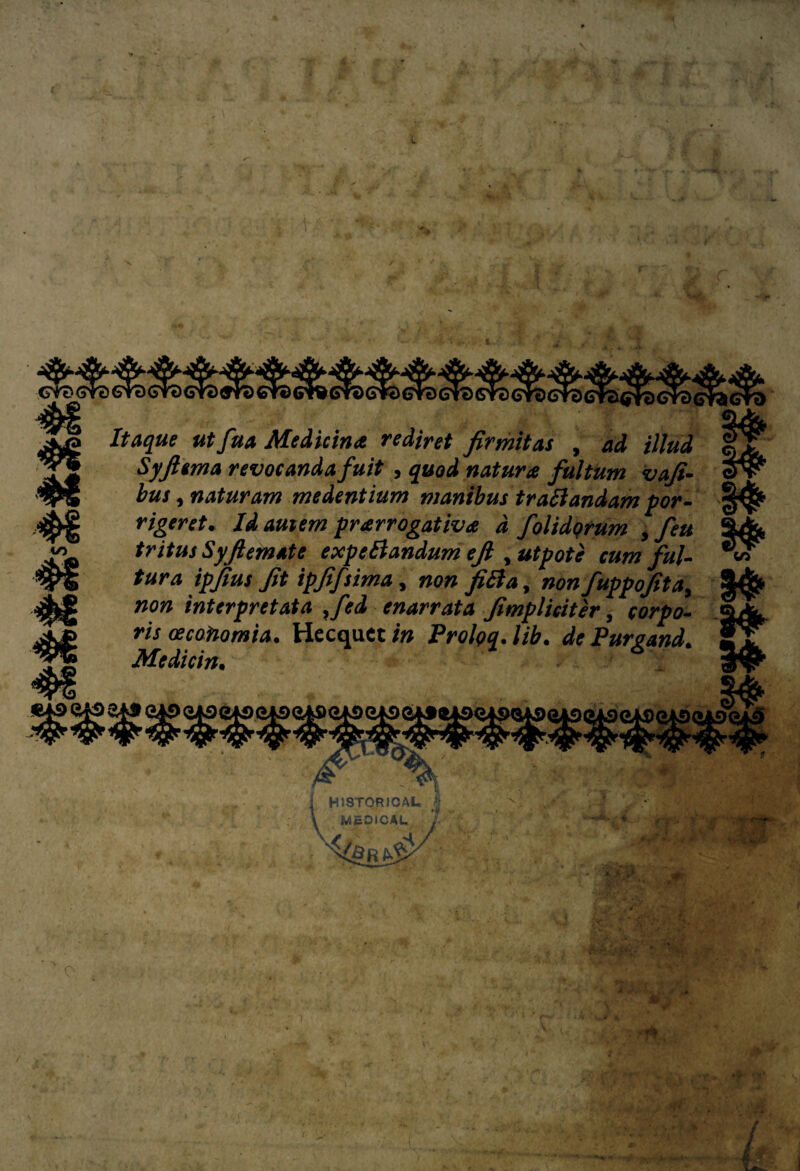 Itaque ut ſua Medicinæ rediret firmitas , ad illud
Syſtema revocanda fuit , quod naturæ fultum vaſi-
bus , naturam medentium manibus tractandam por-
rigeret. Id autem prærrogativæ à ſolidorum , ſeu
tritus Syſtemate expectandum eſt , utpotè cum ful-
tura ipſius ſit ipſiſsima , non ficta , non ſuppoſita,
non interpretata , ſed enarrata ſimplicitèr , corpo-
ris œconomia. Hecquet in Proloq. lib. de Purgand.
Medicin.
HISTORICAL
MEDICAL
LIBRARY